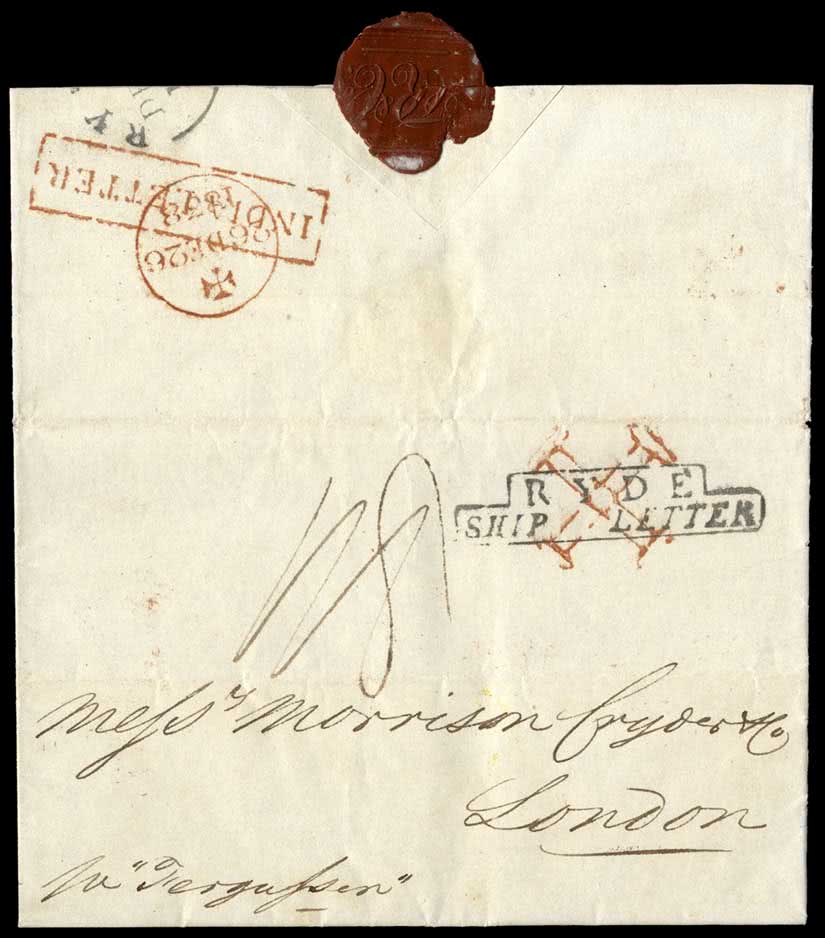 RY
INDIA LETTER
26 DE 26
1838
RYDE
SHIP LETTER
1/8
Messrs Morrison Cryder & Co
London
pr "Fergussen"